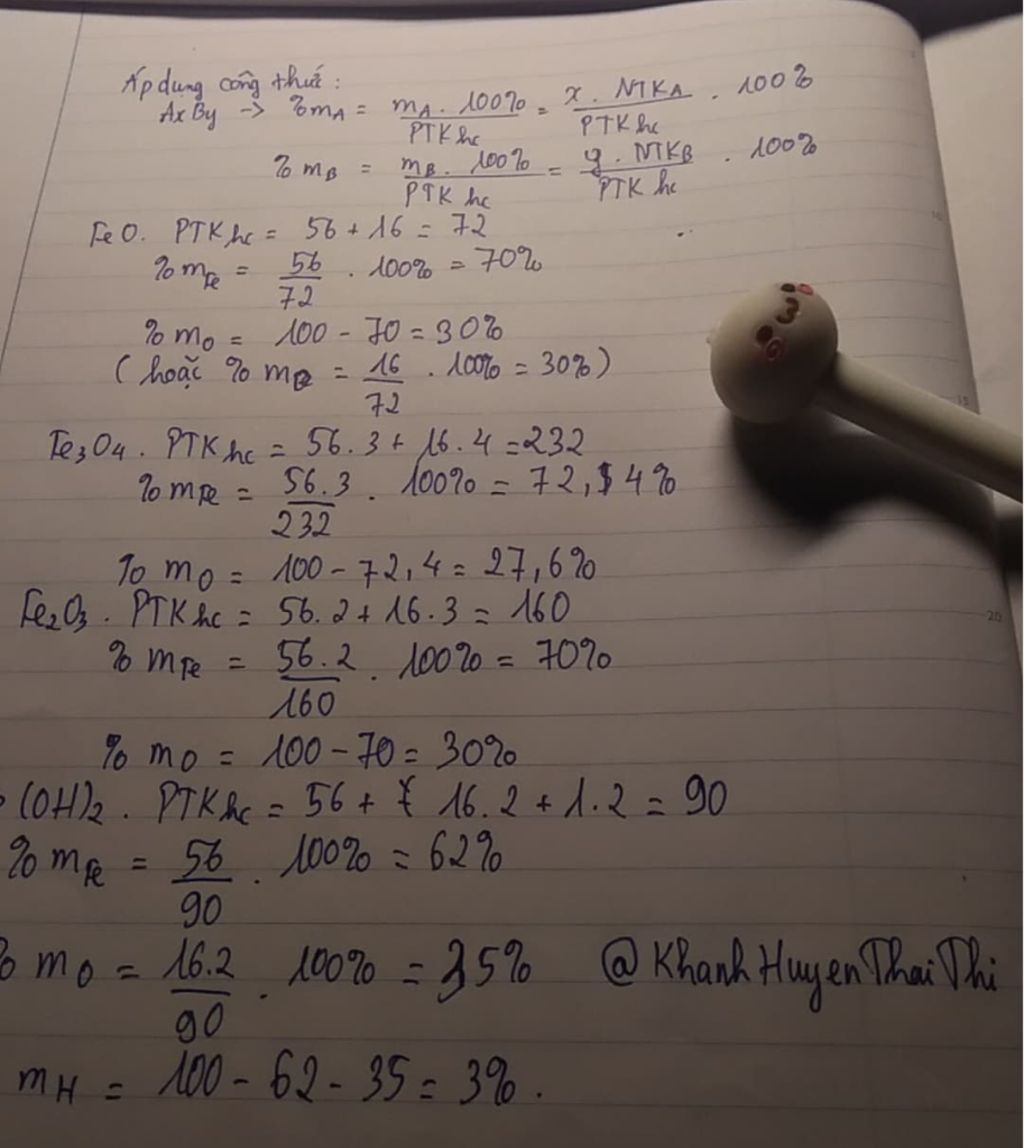 Áp dụng công thức:
AxBy → %mA = mA . 100% / PTK hc = x . NTKA / PTK hc . 100%
%mB = mB . 100% / PTK hc = y . NTKB / PTK hc . 100%
FeO. PTK hc = 56 + 16 = 72
%mFe = 56/72 . 100% = 70%
%mO = 100 - 70 = 30%
(hoặc %mO = 16/72 . 100% = 30%)
Fe3O4. PTK hc = 56.3 + 16.4 = 232
%mFe = 56.3/232 . 100% = 72,4%
%mO = 100 - 72,4 = 27,6%
Fe2O3. PTK hc = 56.2 + 16.3 = 160
%mFe = 56.2/160 . 100% = 70%
%mO = 100 - 70 = 30%
(OH)2. PTK hc = 56 + 16.2 + 1.2 = 90
%mFe = 56/90 . 100% = 62%
%mO = 16.2/90 . 100% = 35% @KhanhHuyenThaiThi
mH = 100 - 62 - 35 = 3%.
10
15
20